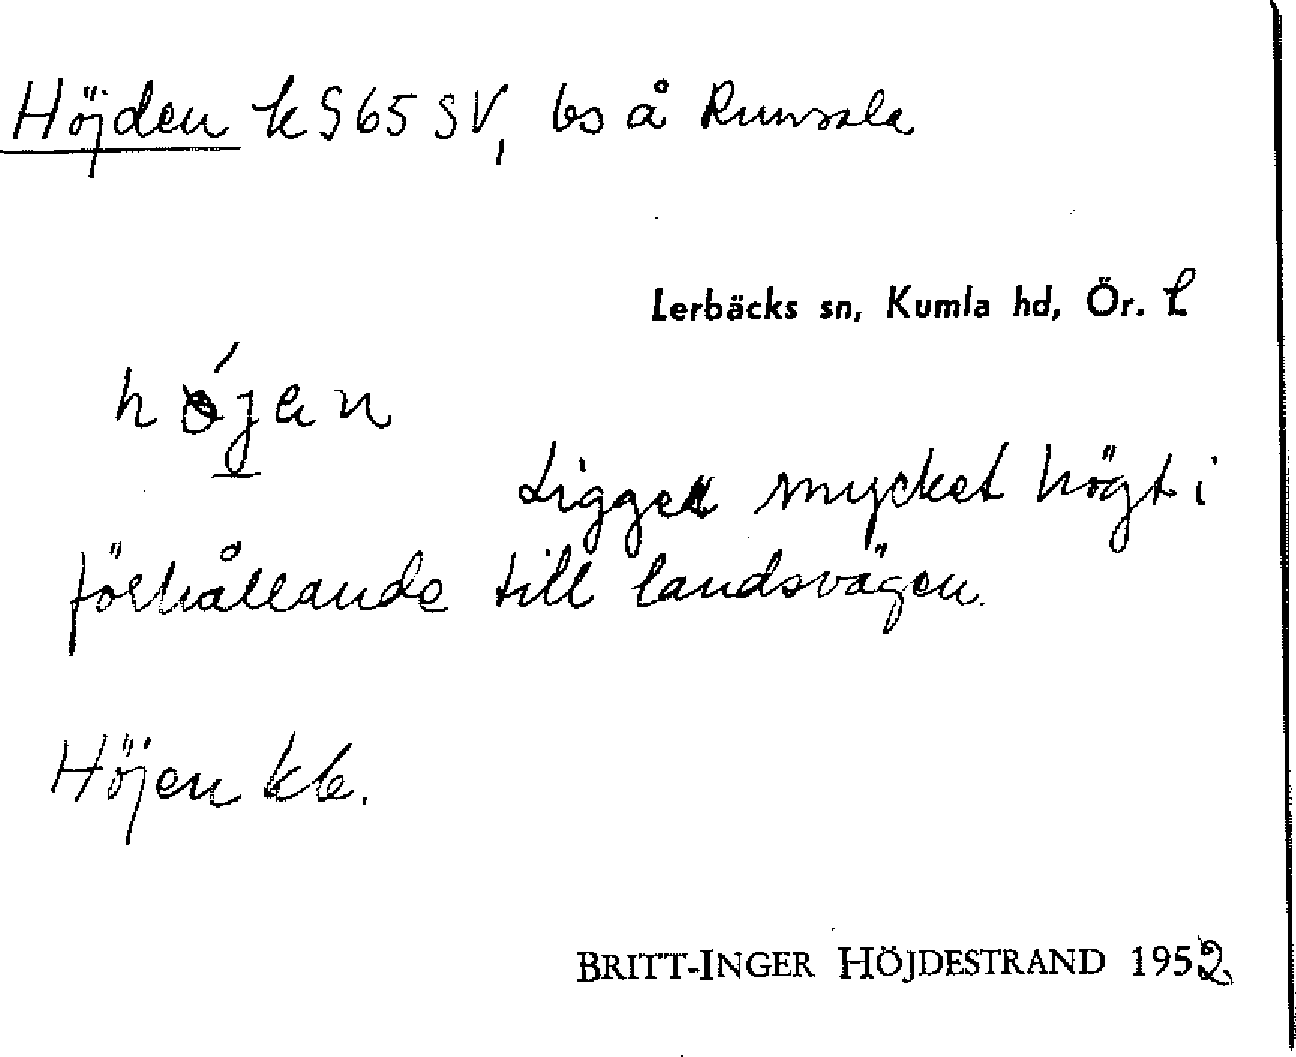 Höjden k S65 SV, bs å Runsala
Lerbäcks sn, Kumla hd, Ör. L
höjan
Ligger mycket högt i
förhållande till landsvägen.
Höjen kb.
BRITT-INGER HÖJDESTRAND 1952